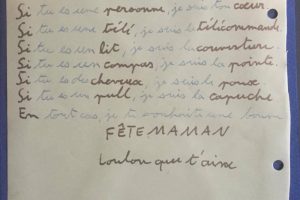 Si tu es une personne, je suis ton cœur
Si tu es une télé, je suis la télécommande
Si tu es un lit, je suis la couverture.
Si tu es un compas, je suis la pointe.
Si tu es des cheveux, je suis la poux
Si tu es un pull, je suis la capuche
En tout cas, je te souhaite une bonne
FÊTE MAMAN
Loulou qui t'aime